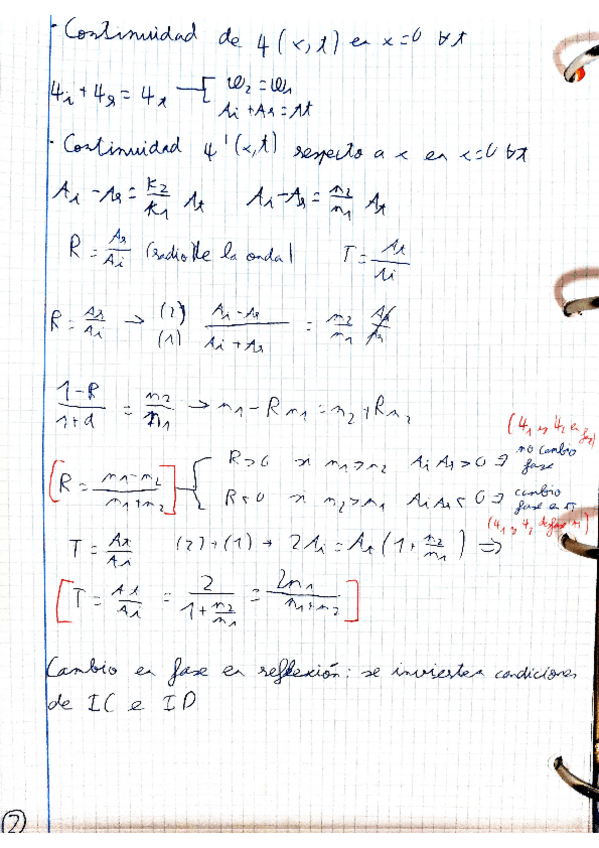 · Continuidad de ψ(x,t) en x=0 ∀t
ψi + ψr = ψt → [ ω2 = ω1
Ai + Ar = At
· Continuidad ψ'(x,t) respecto a x en x=0 ∀t
Ai - Ar = k2/k1 At    Ai - Ar = n2/n1 At
R = Ar/Ai (radio de la onda)    T = At/Ai
R = Ar/Ai → (2)/(1)  (Ai - Ar)/(Ai + Ar) = n2/n1 At/At
(1-R)/(1+d) = n2/n1 → n1 - R n1 = n2 + R n2
(ψ1 y ψ2 en
[R = (n1-n2)/(n1+n2)] { R>0 si n1>n2 Ai Ar>0 ⇒ no cambio fase
R<0 si n2>n1 Ai Ar<0 ⇒ cambio fase en π
T = At/A1    (2)+(1) → 2Ai = At (1 + n2/n1) ⇒
[T = At/Ai = 2/(1 + n2/n1) = 2n1/(n1+n2)]
Cambio en fase en reflexión: se invierten condiciones
de IC e ID
2